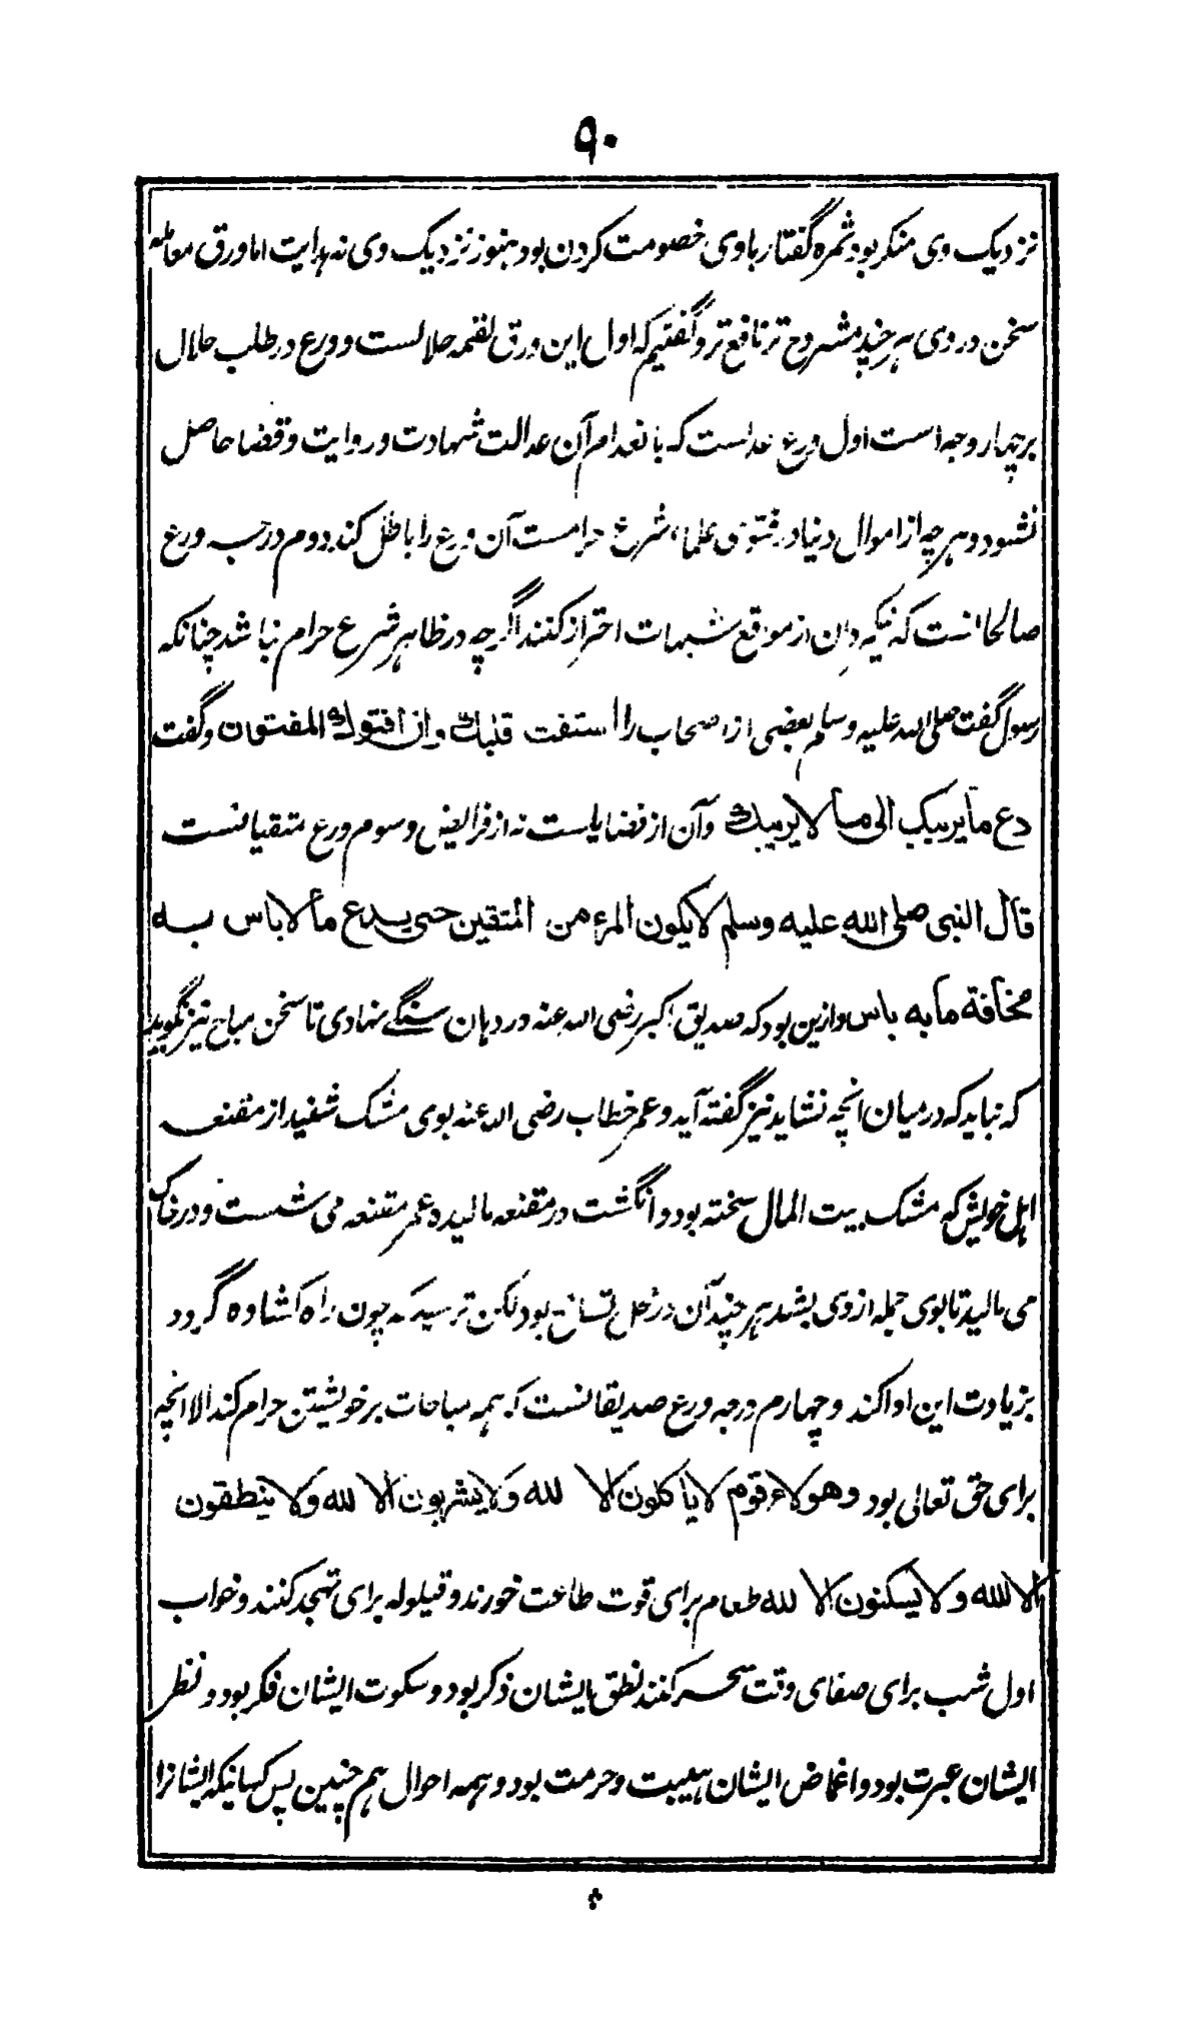 ۹۰
نزدیک وی منکر بود ثمره گفتار باوی خصومت کردن بود هنوز نزدیک وی نه هدایت اما ورق معامله
سخن در وی هر چند مشروح تر نافع تر و گفتیم که اول این ورق لقمه حلالست و ورع در طلب حلال
بر چهار وجه است اول ورع عدلست که بانعدام آن عدالت شهادت و روایت و قضا حاصل
نشود و هر چه از اموال دنیا در فتوی علماء شرع حرامست آن ورع را باطل کند دوم درجب ورع
صالحانست که نیکمردان از موقع شبهات احتراز کنند اگر چه در ظاهر شرع حرام نباشد چنانکه
رسول گفت صلی الله علیه وسلم بعضی از اصحاب را استفت قلبك وان افتوك المفتون و گفت
دع ما یریبک الی ما لا یریبك وآن از فضایلست نه از فرایض و سوم ورع متقیانست
قال النبی صلی الله علیه وسلم لا یکون المرء من المتقین حتی یدع مالا باس به
مخافة ما به باس و ازین بود که صدیق اکبر رضی الله عنه در دهان سنگے نهادی تا سخن مباح نیز نگوید
که نباید که در میان انچه نشاید نیز گفته آید و عمر خطاب رضی الله عنه بوی مشک شنید از مقنعه
اهل خویش که مشک بیت المال سخته بود و انگشت در مقنعه مالیده عمر مقنعه می شست و در خاک
می مالید تا بوی جمله از وی بشد هر چند آن در محل تسامح بود لکن ترسید که چون راه کشاده گردد
بزیادت این ادا کند و چهارم درجه ورع صدیقانست که همه مباحات بر خویشتن حرام کند الا انچه
برای حق تعالی بود وهولاء قوم لا یاکلون الا لله ولا یشربون الا لله ولا ینطقون
الا لله ولا یسکنون الا لله طعام برای قوت طاعت خورند و قیلوله برای تهجد کنند و خواب
اول شب برای صفای وقت سحر کنند نطق ایشان ذکر بود و سکوت ایشان فکر بود و نظر
ایشان عبرت بود و اغماض ایشان هیبت و حرمت بود و همه احوال هم چنین پس کسانیکه ایشانرا